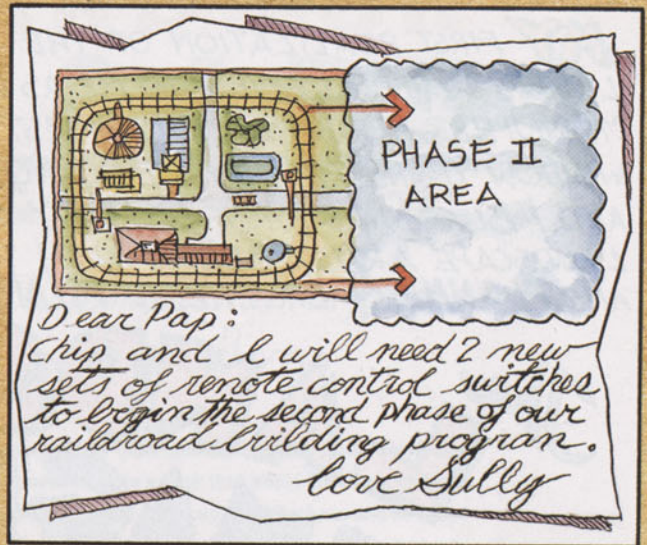 PHASE II
AREA
Dear Pap:
Chip and I will need 2 new
sets of remote control switches
to begin the second phase of our
raildroad building program.
love Sully